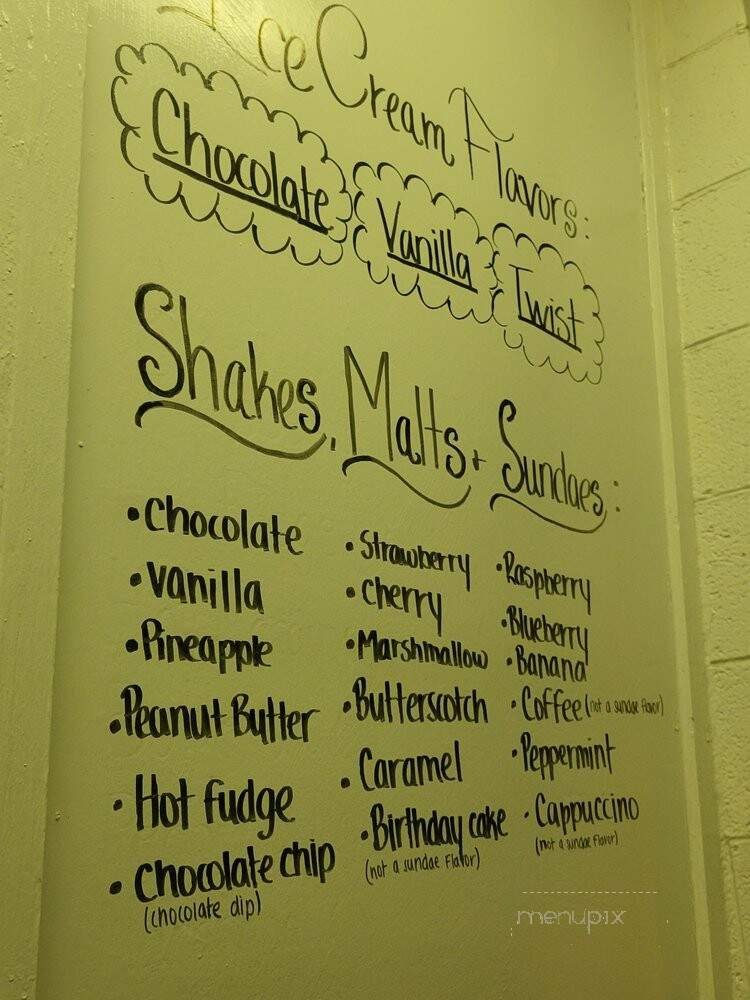 Ice Cream Flavors:
Chocolate
Vanilla
Twist
Shakes, Malts + Sundaes:
• Chocolate
• Vanilla
• Pineapple
• Peanut Butter
• Hot fudge
• Chocolate chip
(chocolate dip)
• Strawberry
• Cherry
• Marshmallow
• Butterscotch
• Caramel
• Birthday cake
(not a sundae Flavor)
• Raspberry
• Blueberry
• Banana
• Coffee (not a sundae flavor)
• Peppermint
• Cappuccino
(not a sundae flavor)
menupix